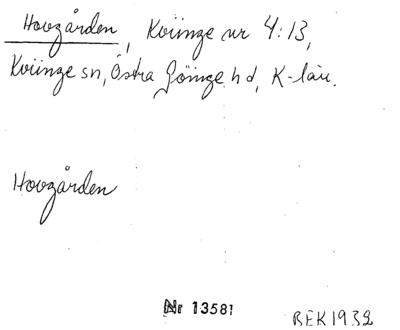 Hovgården, Kviinge nr 4:13,
Kviinge sn, Östra Göinge hd, K-län.
Hovgården
Nr 13581
BEK 1932